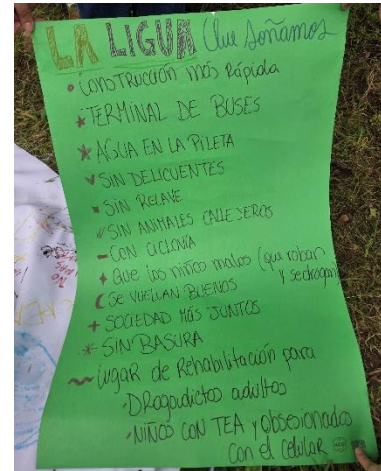 LA LIGUA Que soñamos
• CONSTRUCCIÓN más Rápida
* TERMINAL DE BUSES
* AGUA EN LA PILETA
SIN DELICUENTES
SIN RELAVE
SIN ANIMALES CALLEJEROS
- CON CICLOVÍA
+ Que los niños malos (que roban
y se drogan)
SE VUELVAN BUENOS
+ SOCIEDAD MÁS JUNTOS
* SIN BASURA
~ lugar de Rehabilitación para
• DRogadictos adultos
• NIÑOS CON TEA y obsesionados
Con el celular